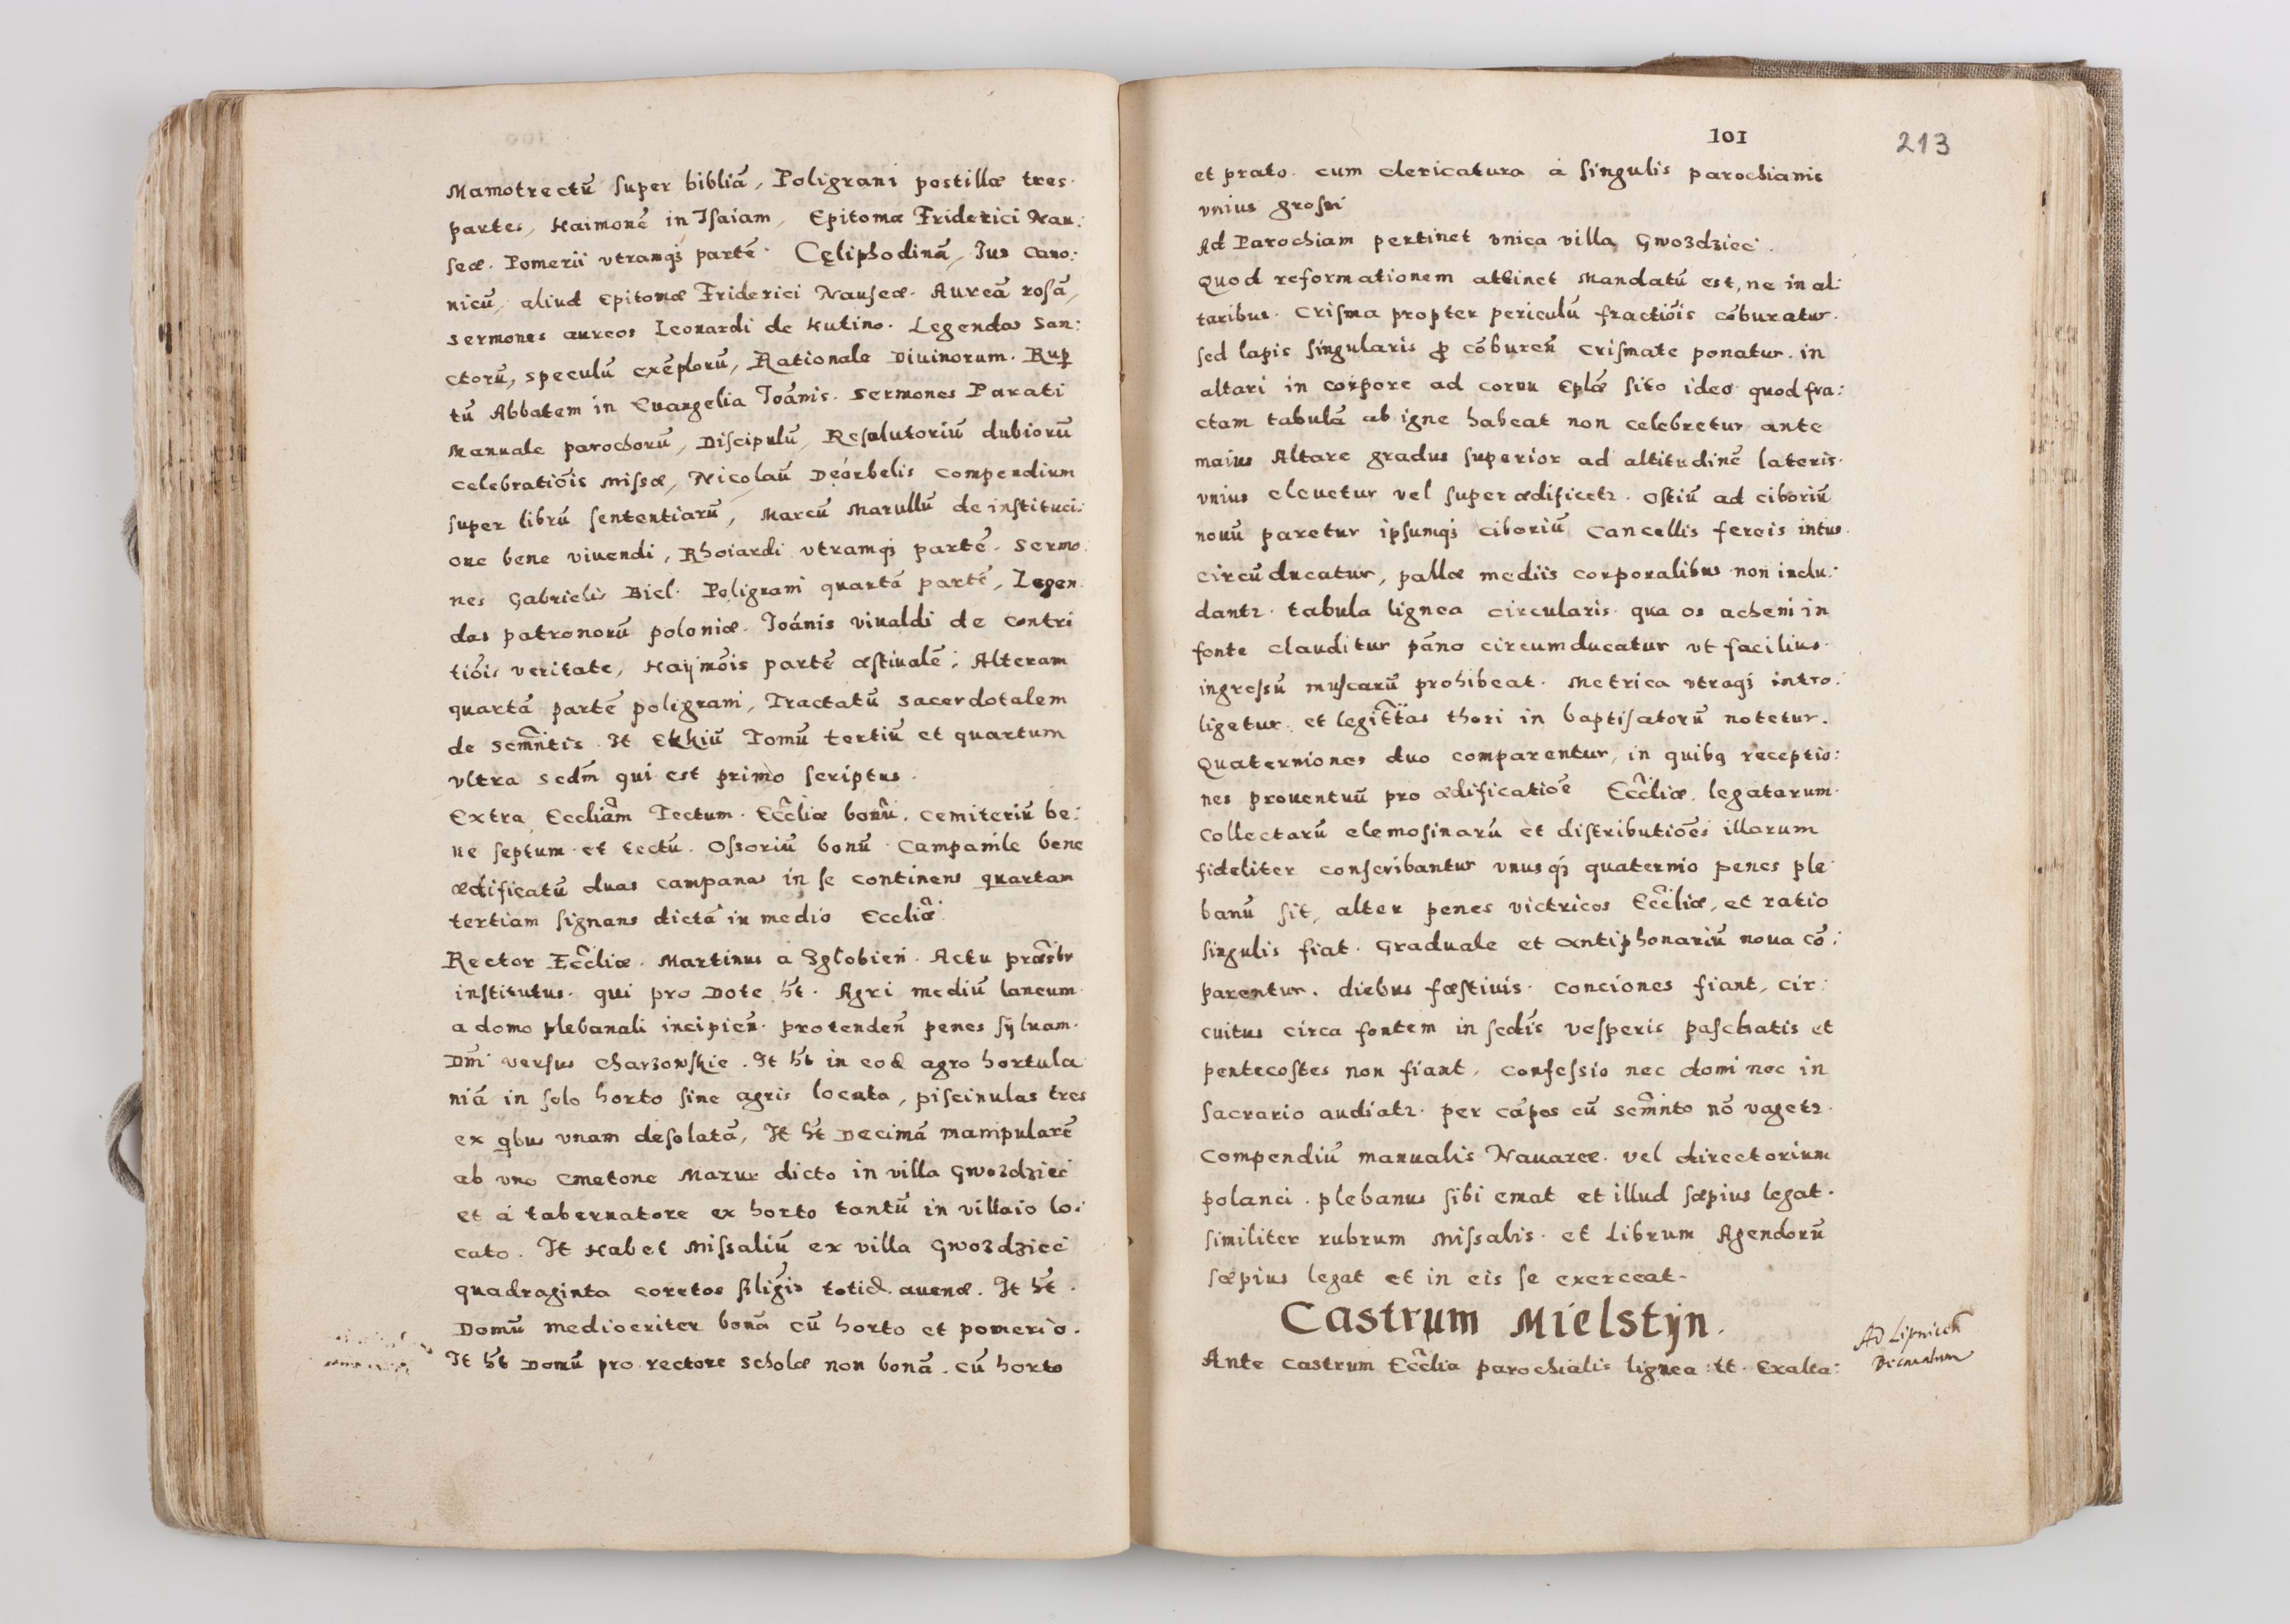 Mamotrectū super bibliā, Poligrani postillæ tres
partes, Haimonē in Isaiam, Epitomæ Friderici Nau:
seæ. Pomerii vtramq; partē. Cęliphodinā, Ius Cano:
nicū, aliud Epitomæ Friderici Nauseæ. Aureā rosā,
sermones aureos Leonardi de Hutino. Legendas San:
ctorū, speculū exēplorū, Rationale Diuinorum. Ruꝑ
tū Abbatem in Euangelia Ioānis. Sermones Parati
Manuale parochorū, Discipulū, Resolutoriū dubiorū
celebratiōis missæ, Nicolaū Deorbelis compendium
super librū sententiarū, Marcū Marullū de instituci:
one bene viuendi, Rhoiardi vtramq; partē. Sermo:
nes Gabrielis Biel. Poligrani quartā partē, Legen
das patronorū poloniæ. Ioānis viualdi de Contri
tiōis veritate, Haijmōis partē æstiualē; Alteram
quartā partē poligrani, Tractatū sacerdotalem
de scm̄ntis. It Ekkiū Tomū tertiū et quartum
vltra scdm̄ qui est primo scriptus.
Extra Eccliam̄ Tectum. Ecc̄liæ bonū. cemiteriū be:
ne septum et tectū. Ossoriū bonū. Campanile bene
ædificatū duas campanas in se continens quartam
tertiam signans dictā in medio Eccliǣ.
Rector Ecc̄liæ. Martinus a Zglobień. Actu præsb̄r
institutus. qui pro Dote ht̄. Agri mediū laneum
a domo plebanali incipień. protendeń penes sÿluam
Dm̄i versus Charzowskie. It ht̄ in eod agro hortula
niā in solo horto sine agris locata, piscinulas tres
ex qbus vnam desolatā, It ht̄ Decimā manipularē
ab vno cmetone Mazur dicto in villa Gwozdziec
et á tabernatore ex horto tantū in villaio lo:
cato. It Habet Missaliū ex villa Gwozdziec
quadraginta coretos siligis totid. auenæ. It ht̄.
Domū mediocriter bonā cū horto et pomerio.
It ht̄ Domū pro rectore scholæ non bonā. cū horto
101
213
et prato. cum clericatura á singulis parochianis
vnius grossi
Ad Parochiam pertinet vnica villa Gwozdziec.
Quod reformationem attinet Mandatū est, ne in al:
taribus. Crisma propter periculū fractiōis cōburatur.
sed lapis singularis ꝓ cōbureń crismate ponatur. in
altari in corpore ad cornu Eplǣ sito ideo quod fra:
ctam tabulā ab igne habeat non celebretur ante
maius Altare gradus superior ad altitudinē lateris.
vnius eleuetur vel superædificetꝛ. Ostiū ad ciboriū
nouū paretur ipsumq; ciboriū cancellis fereis intus.
circū ducatur, pallæ mediis corporalibus non inclu:
dantꝛ. tabula lignea circularis qua os acheni in
fonte clauditur pāno circumducatur vt facilius.
ingressū muscarū prohibeat. Metrica vtraq; intro:
ligetur. et legitt̄as thori in baptisatorū notetur.
Quaterniones duo comparentur, in quibꝯ receptio:
nes prouentuū pro ædificatioē Ecc̄liæ. legatarum.
Collectarū elemosinarū et distributiōes illarum
fideliter conscribantur vnusq; quaternio penes ple
banū sit, alter penes victricos Ecc̄liæ, et ratio
singulis fiat. Graduale et Antiphonariū noua cō:
parentur. diebus fæstiuis. conciones fiant, cir:
cuitus circa fontem in scdis̄ vesperis paschatis et
pentecostes non fiant. confessio nec domi nec in
sacrario audiatꝛ. per cāpos cū scm̄nto nō vagetꝛ.
Compendiū manualis Nauaræ. vel directorium
polanci. plebanus sibi emat et illud sæpius legat.
similiter rubrum Missalis. et Librum Agendorū
sæpius legat et in eis se exerceat.
Castrum Mielstÿn.
Ante castrum Ecc̄lia parochialis lignea tt. Exalta:
Ad Lipnicen̄
Decanatum